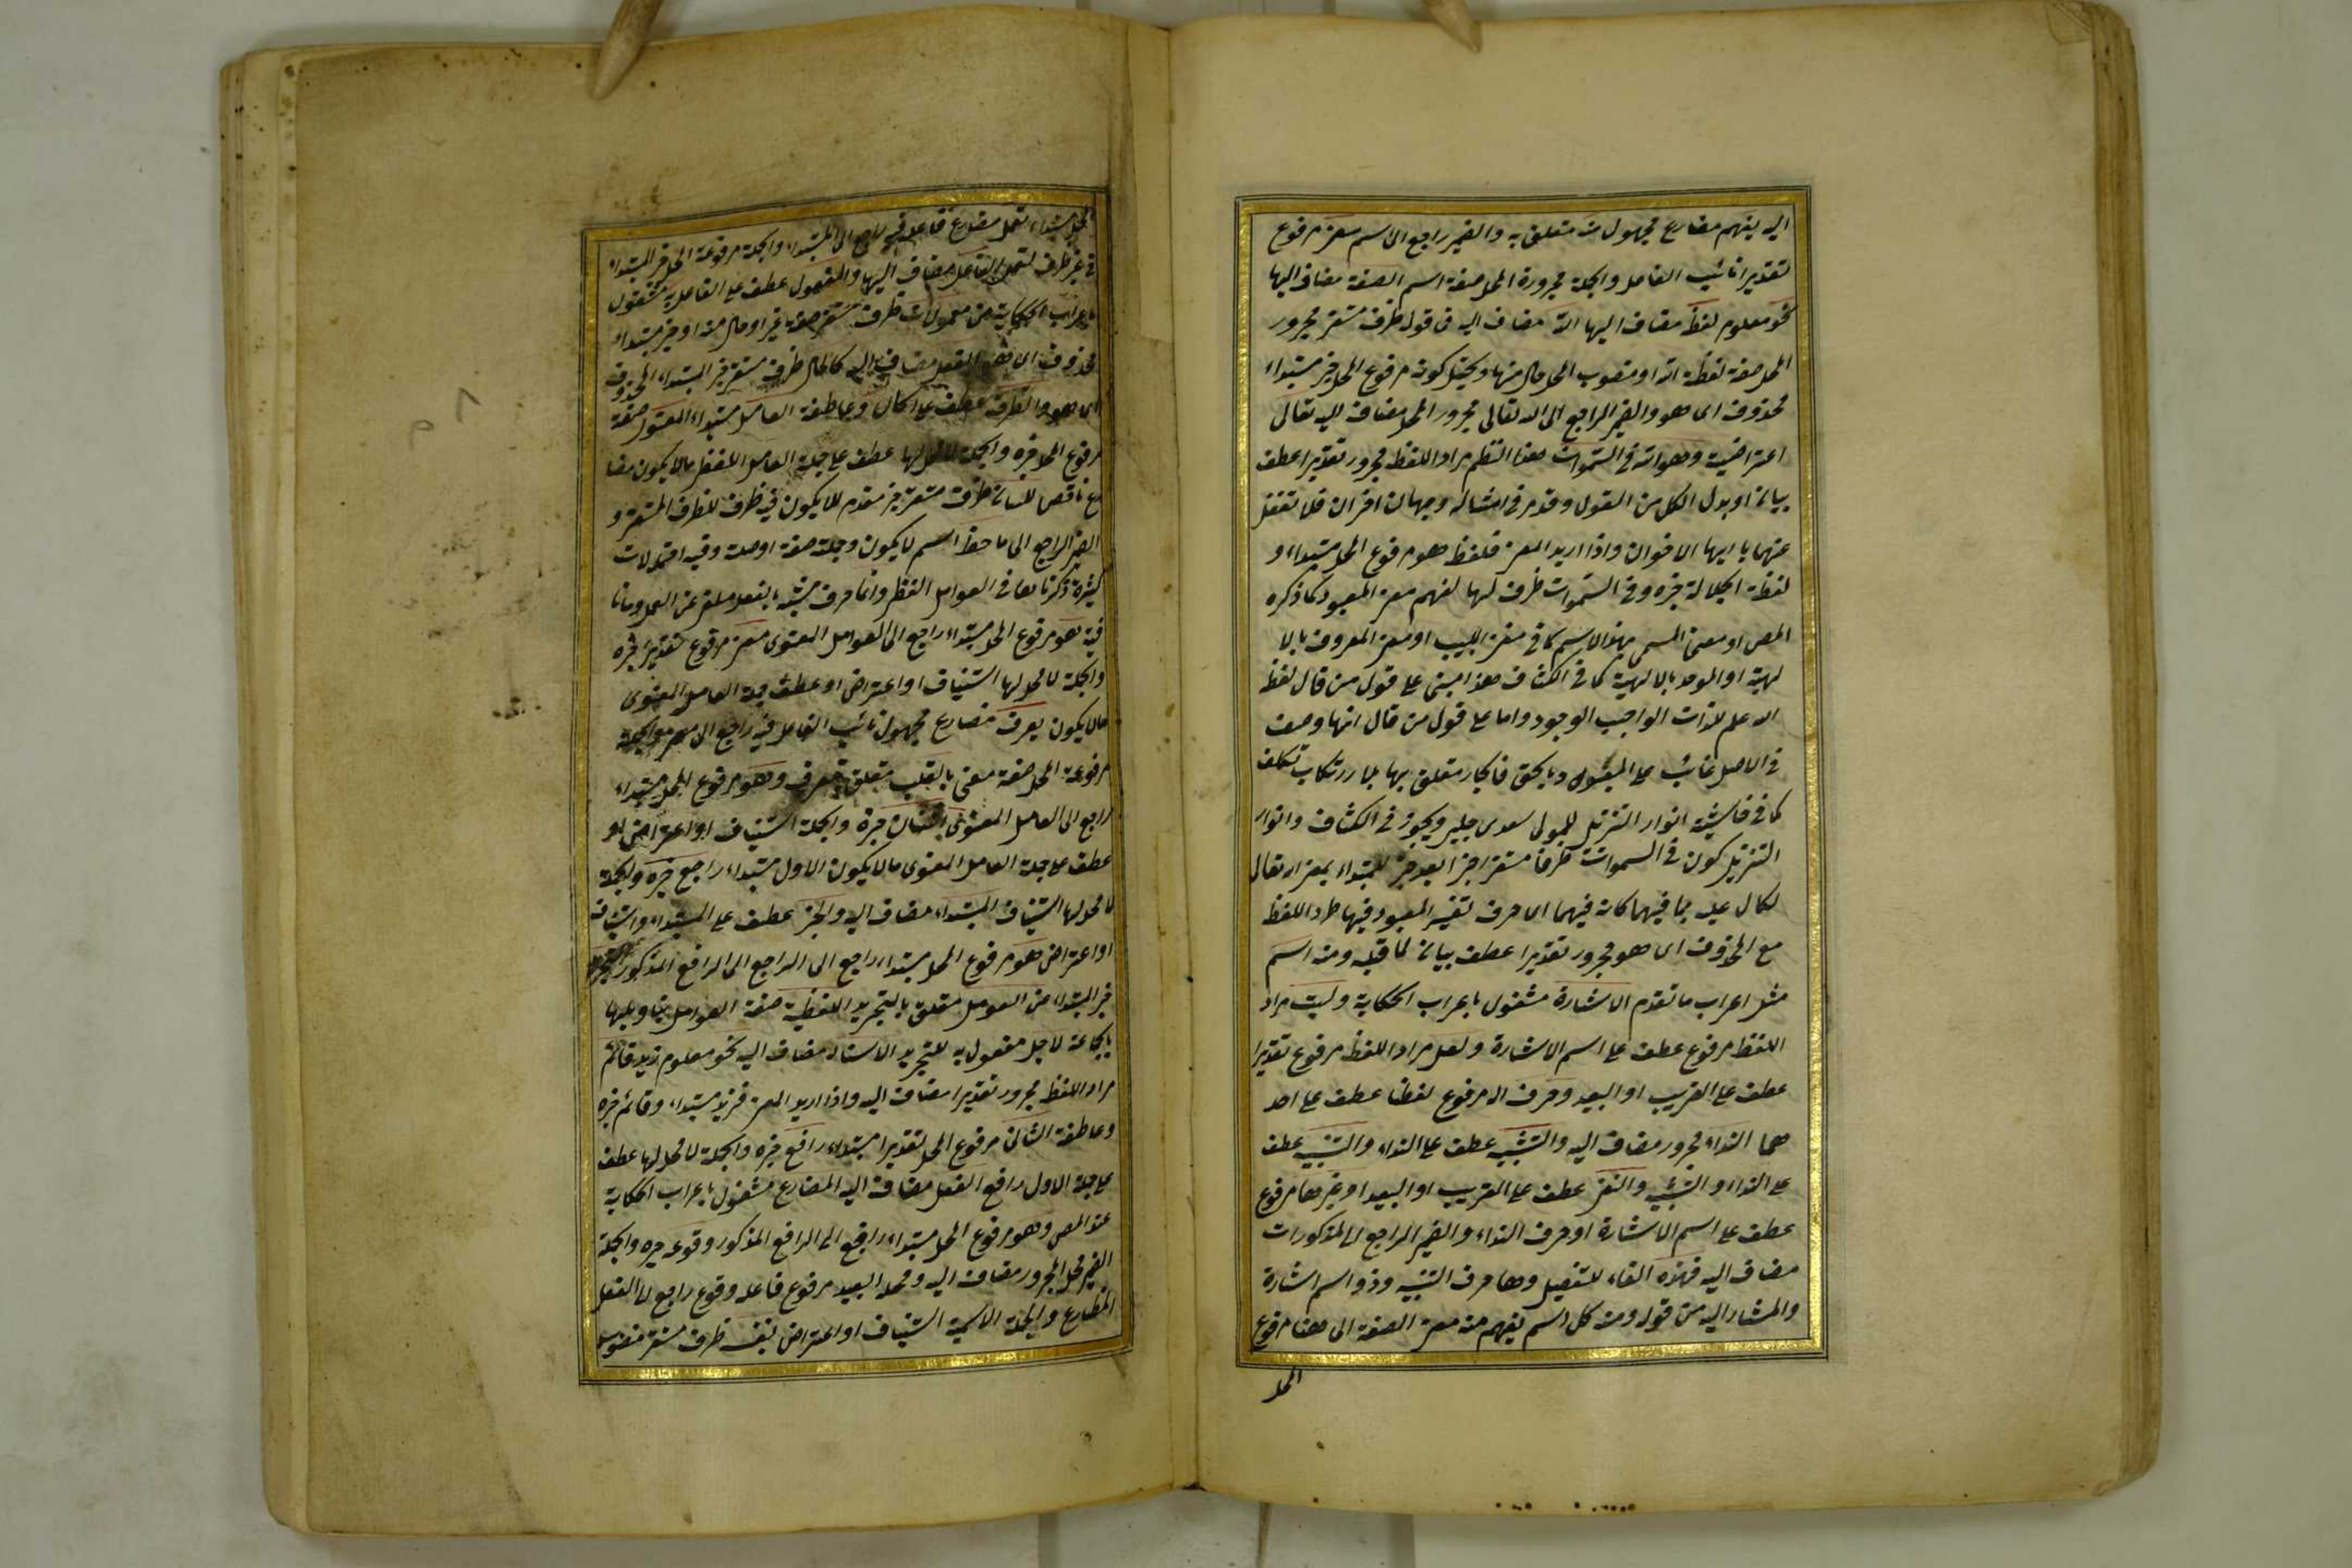 اليه يفهم مضارع مجهول منه متعلق به والضمير راجع الى الاسم معنى مرفوع
تقديرا نائب الفاعل والجملة مجرورة المحل صفة اسم الصفة مضاف اليها
نحو معلوم لفظ مضاف اليها الله مضاف اليه في قوله ظرف مستقر مجرور
المحل صفة لفظة الله او منصوب المحل حال منها ويحتمل كونه مرفوع المحل خبر مبتداء
محذوف اى هو والضمير الراجع الى الله تعالى مجرور المحل مضاف اليه تعالى
اعتراضية وهو الله في السموات هذا النظم مراد اللفظ مجرور تقديرا عطف
بيان او بدل الكل من القول وقد مر في امثاله وجهان اخران فلا تغفل
عنهما يا ايها الاخوان واذا اريد المعنى فلفظ هو مرفوع المحل مبتداء و
لفظة الجلالة خبره وفى السموات ظرف لها لفهم معنى المعبود كما ذكره
المص او معنى المسمى بهذا الاسم كما في مغنى اللبيب او معنى المعروف بالا
لهية او الموحد بالالهية كما في الكشاف هذا مبنى على قول من قال لفظ
الله علم لذات الواجب الوجود واما على قول من قال انها وصف
في الاصل غائب على المعبود بالحق فالجار متعلق بها بلا ارتكاب تكلف
كما في حاشية انوار التنزيل للمولى سعدى چلبى ويجوز في الكشاف وانوار
التنزيل كون في السموات ظرفا مستقرا خبرا بعد خبر للمبتداء بمعنى انه تعالى
لكمال علمه بما فيهما كانه فيهما اى حرف تفسير المعبود فيها مراد اللفظ
مع المحذوف اى هو مجرور تقديرا عطف بيان لما قبله ومنه اسم
مثل اعراب ما تقدم الاشارة مشغول باعراب الحكاية وليت مراد
اللفظ مرفوع عطف على اسم الاشارة ولعل مراد اللفظ مرفوع تقديرا
عطف على القريب او البعيد وحرف الـ مرفوع لفظا عطف على احد
هما النداء مجرور مضاف اليه والتشبيه عطف على النداء والتنبيه عطف
على النداء والتشبيه والنفى عطف على القريب او البعيد او غيرها مرفوع
عطف على اسم الاشارة او حرف النداء والضمير الراجع الى المذكورات
مضاف اليه فهذه الفاء للتفصيل وها حرف التنبيه وذه اسم اشارة
والمشار اليه من قوله ومنه كل اسم يفهم منه معنى الصفة الى هنا مرفوع
المحل
المحل مبتداء تعمل مضارع فاعله فيه راجع الى المبتداء والجملة مرفوعة المحل خبر المبتداء
في غير ظرف لتعمل الفاعل مضاف اليها والمفعول عطف على الفاعل مشغول
باعراب الحكاية من معمولات ظرف مستقر صفة غير او حال منه او خبر مبتداء
محذوف اى هو الفعل مضاف اليه كالحال ظرف مستقر خبر المبتداء المحذوف
اى هو والظرف عطف على الحال وعاطفة العامل مبتداء المعنوى صفة
مرفوع المحل خبره والجملة لا محل لها عطف على جملة العامل اللفظى ما لا يكون مضا
رع ناقص للسان ظرف مستقر خبر مقدم للا يكون فيه ظرف للظرف المستقر و
الضمير الراجع الى ما حظ اسم لا يكون وجملته صفة او صلة وفيه احتمالات
كثيرة ذكرناها في العوامل اللفظى وانما حرف مشبه بالفعل ملغى عن العمل وما نا
فية هو مرفوع المحل مبتداء راجع الى العوامل المعنوى معنى مرفوع تقديرا خبره
والجملة لا محل لها استيناف او اعتراض او عطف جملة العامل المعنوى
ما لا يكون يعرف مضارع مجهول نائب الفاعل فيه راجع الى معنى والجملة
مرفوعة المحل صفة معنى بالقلب متعلق بيعرف وهو مرفوع المحل مبتداء
راجع الى العامل المعنوى اثنان خبره والجملة استيناف او اعتراض او
عطف على جملة العامل المعنوى ما لا يكون الاول مبتداء رافع خبره والجملة
لا محل لها استيناف المبتداء مضاف اليه والخبر عطف على المبتداء واستيناف
او اعتراض هو مرفوع المحل مبتداء راجع الى الراجع الى الرافع المذكور التجريد
خبر المبتداء عن العوامل متعلق بالتجريد اللفظية صفة العوامل بتاويلها
بالجماعة لاجل مفعول به للتجريد الاسناد مضاف اليه نحو معلوم زيد قائم
مراد اللفظ مجرور تقديرا مضاف اليه واذا اريد المعنى فزيد مبتداء وقائم خبره
وعاطفة الثانى مرفوع المحل تقديرا مبتداء رافع خبره والجملة لا محل لها عطف
على جملة الاول رافع الفعل مضاف اليه المضارع مشغول باعراب الحكاية
عند المص وهو مرفوع المحل مبتداء راجع الى الرافع المذكور وقوعه خبره والجملة
الضمير محل المجرور مضاف اليه ومحله البعيد مرفوع فاعله وقوع راجع الى الفعل
المضارع والجملة الاسمية استيناف او اعتراض بنفسه ظرف مستقر منصوب